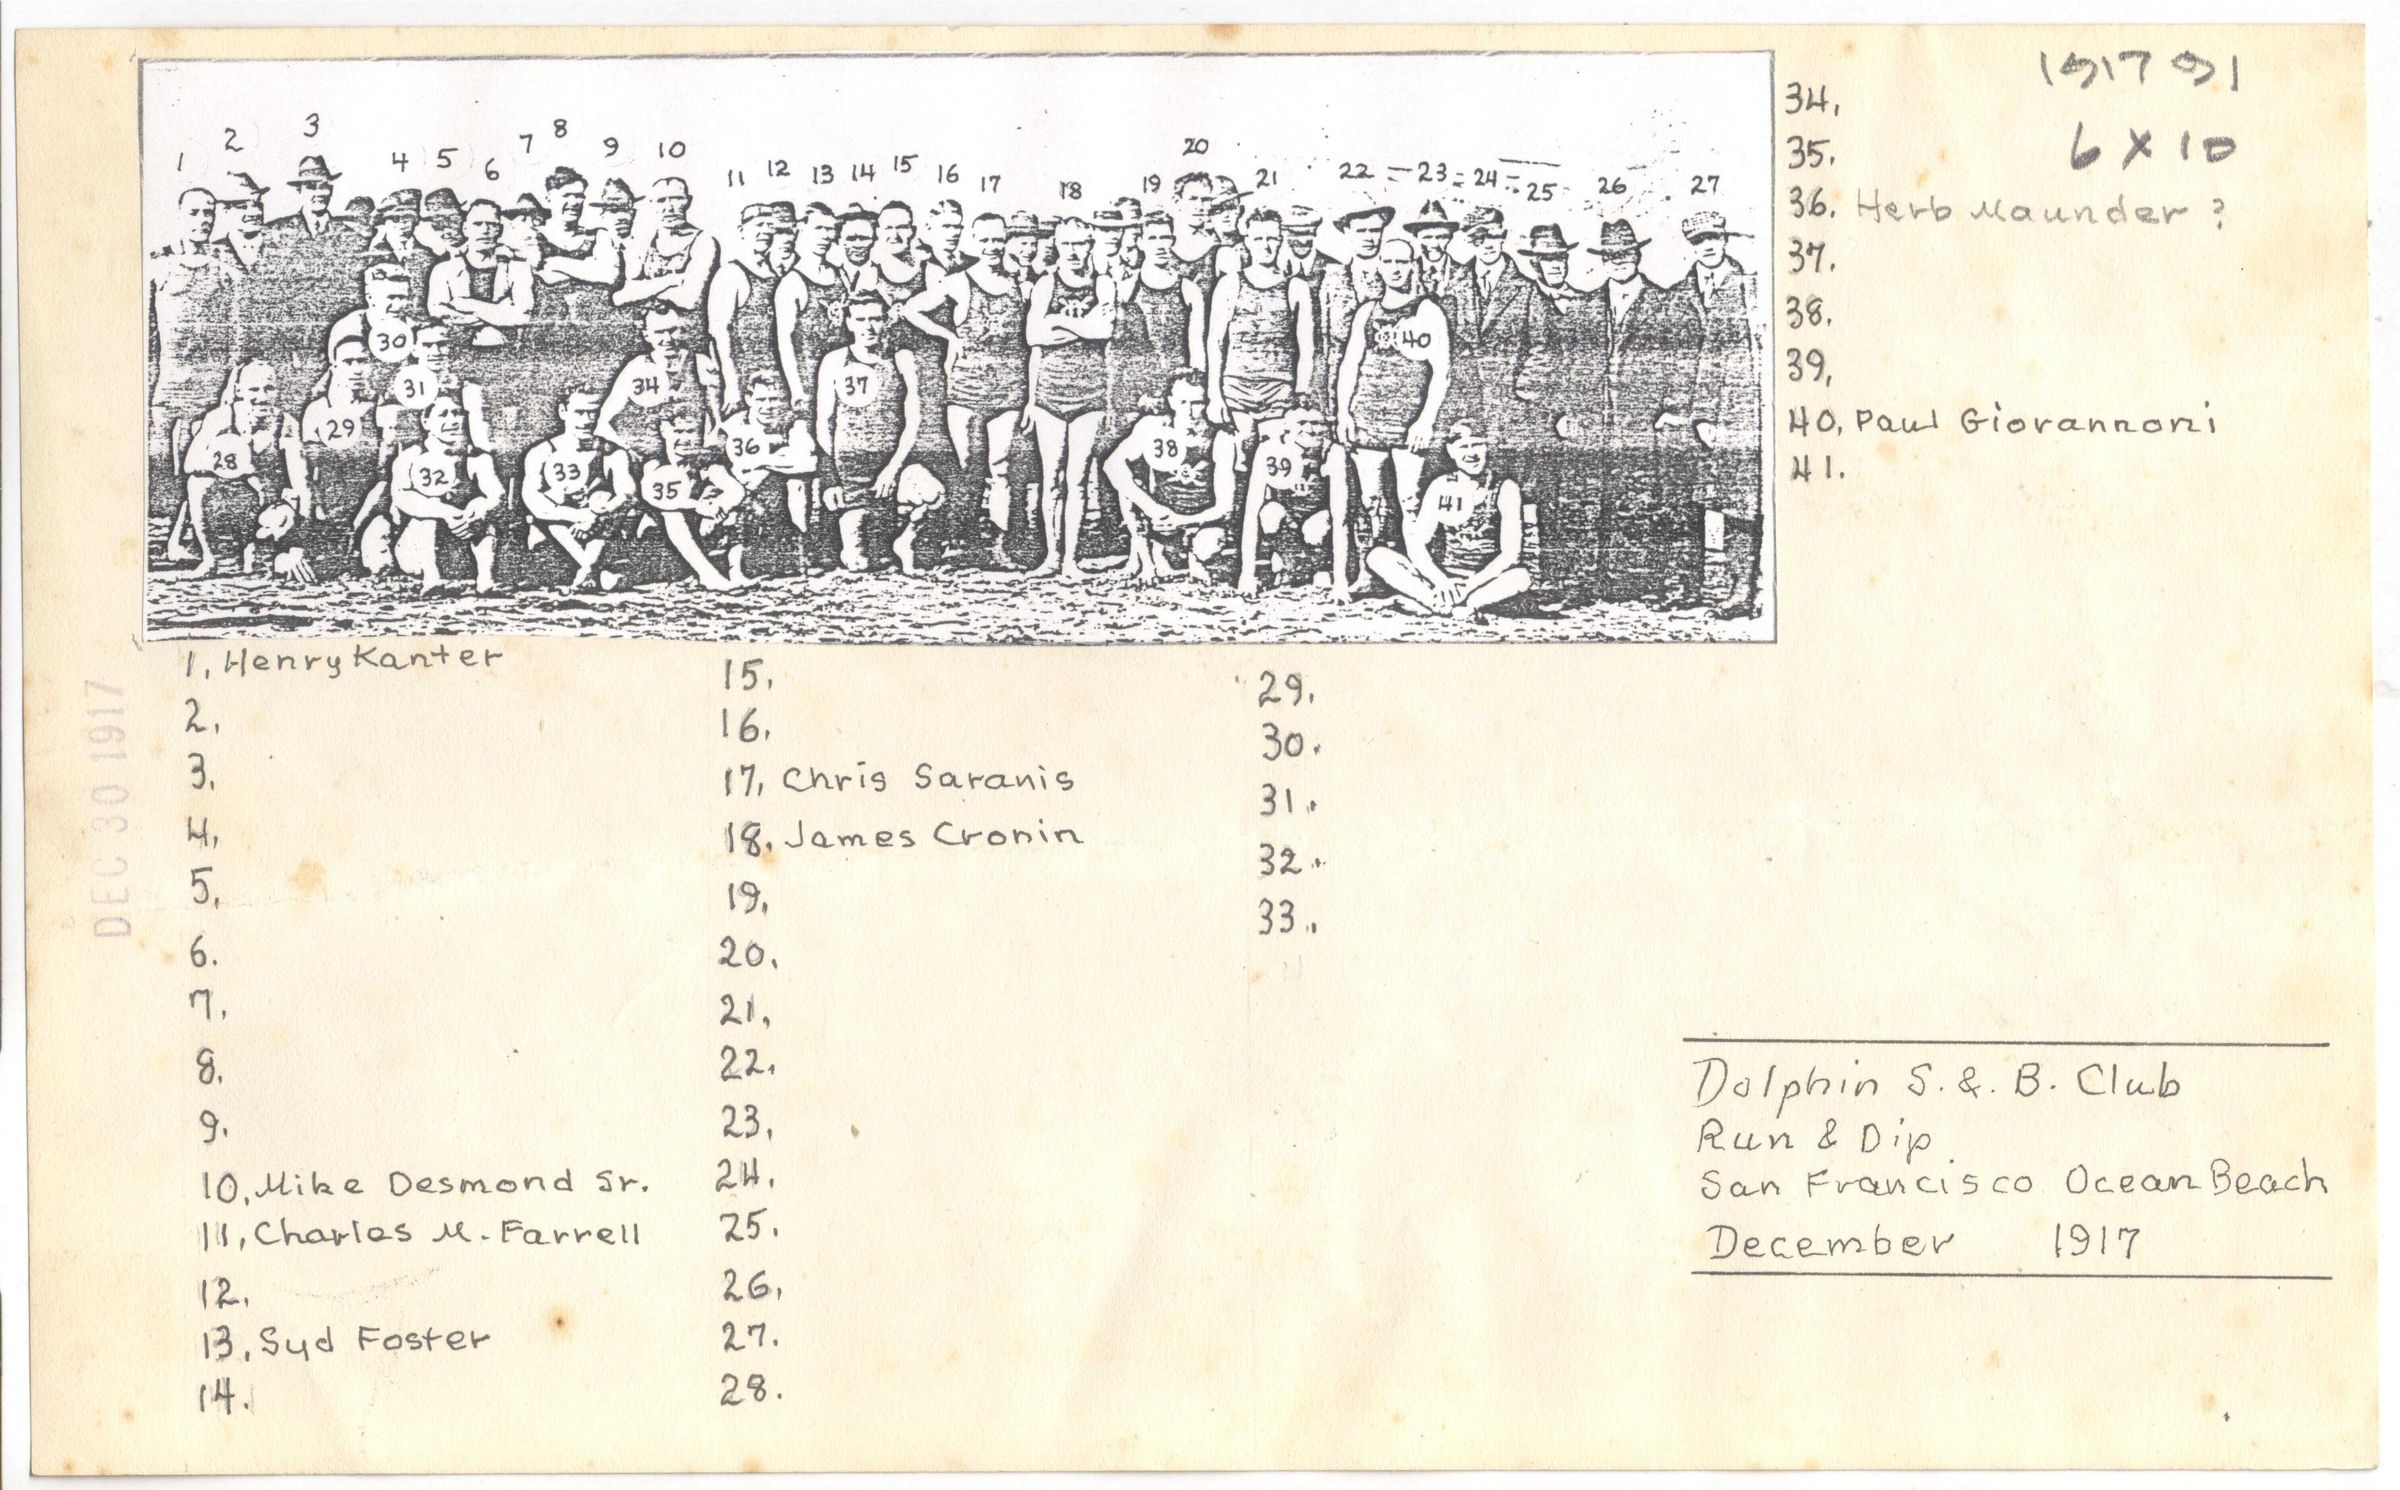 1
2
3
4
5
6
7
8
9
10
11
12
13
14
15
16
17
18
19
20
21
22
23
24
25
26
27
28
29
30
31
32
33
34
35
36
37
38
39
40
41
6 x 10
34.
35.
36. Herb Maunder ?
37.
38.
39.
40. Paul Giovannoni
41.
DEC 30 1917
1. Henry Kanter
2.
3.
4.
5.
6.
7.
8.
9.
10. Mike Desmond Sr.
11. Charles M. Farrell
12.
13. Syd Foster
14.
15.
16.
17. Chris Saranis
18. James Cronin
19.
20.
21.
22.
23.
24.
25.
26.
27.
28.
29.
30.
31.
32.
33.
Dolphin S. & B. Club
Run & Dip
San Francisco Ocean Beach
December 1917